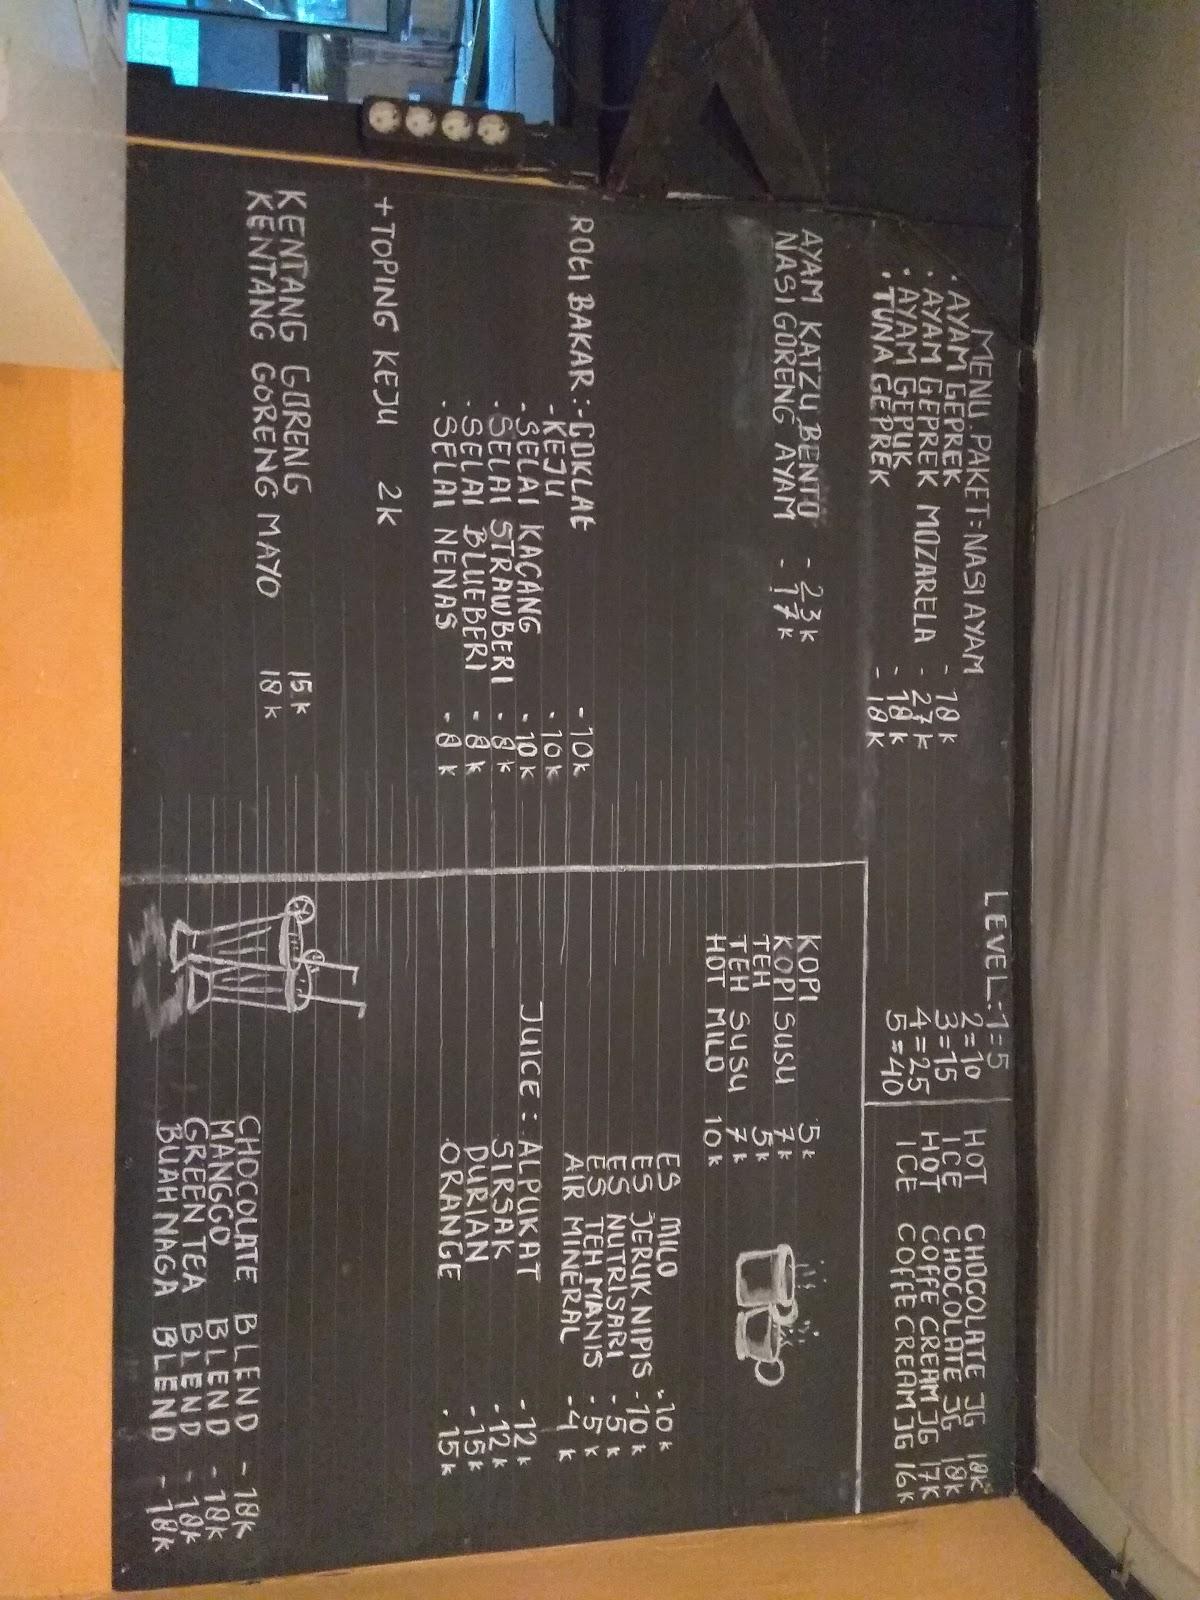 MENU PAKET=NASI AYAM
· AYAM GEPREK - 18k
· AYAM GEPREK MOZARELA - 27k
· AYAM GEPUK - 18k
· TUNA GEPREK - 18k
AYAM KATZU BENTO - 23k
NASI GORENG AYAM - 17k
ROTI BAKAR :- COKLAT - 10k
- KEJU - 10k
- SELAI KACANG - 10k
- SELAI STRAWBERI - 8k
- SELAI BLUEBERI - 8k
- SELAI NENAS - 8k
+ TOPING KEJU 2k
KENTANG GORENG 15k
KENTANG GORENG MAYO 18k
LEVEL : 1=5
2=10
3=15
4=25
5=40
HOT CHOCOLATE JG 18k
ICE CHOCOLATE JG 18k
HOT COFFE CREAM JG 17k
ICE COFFE CREAM JG 16k
KOPI 5k
KOPI SUSU 7k
TEH 5k
TEH SUSU 7k
HOT MILO 10k
ES MILO - 10k
ES JERUK NIPIS - 10k
ES NUTRISARI - 5k
ES TEH MANIS - 5k
AIR MINERAL - 4k
JUICE : ALPUKAT - 12k
SIRSAK - 12k
DURIAN - 15k
ORANGE - 15k
CHOCOLATE BLEND - 18k
MANGGO BLEND - 18k
GREEN TEA BLEND - 18k
BUAH NAGA BLEND - 18k